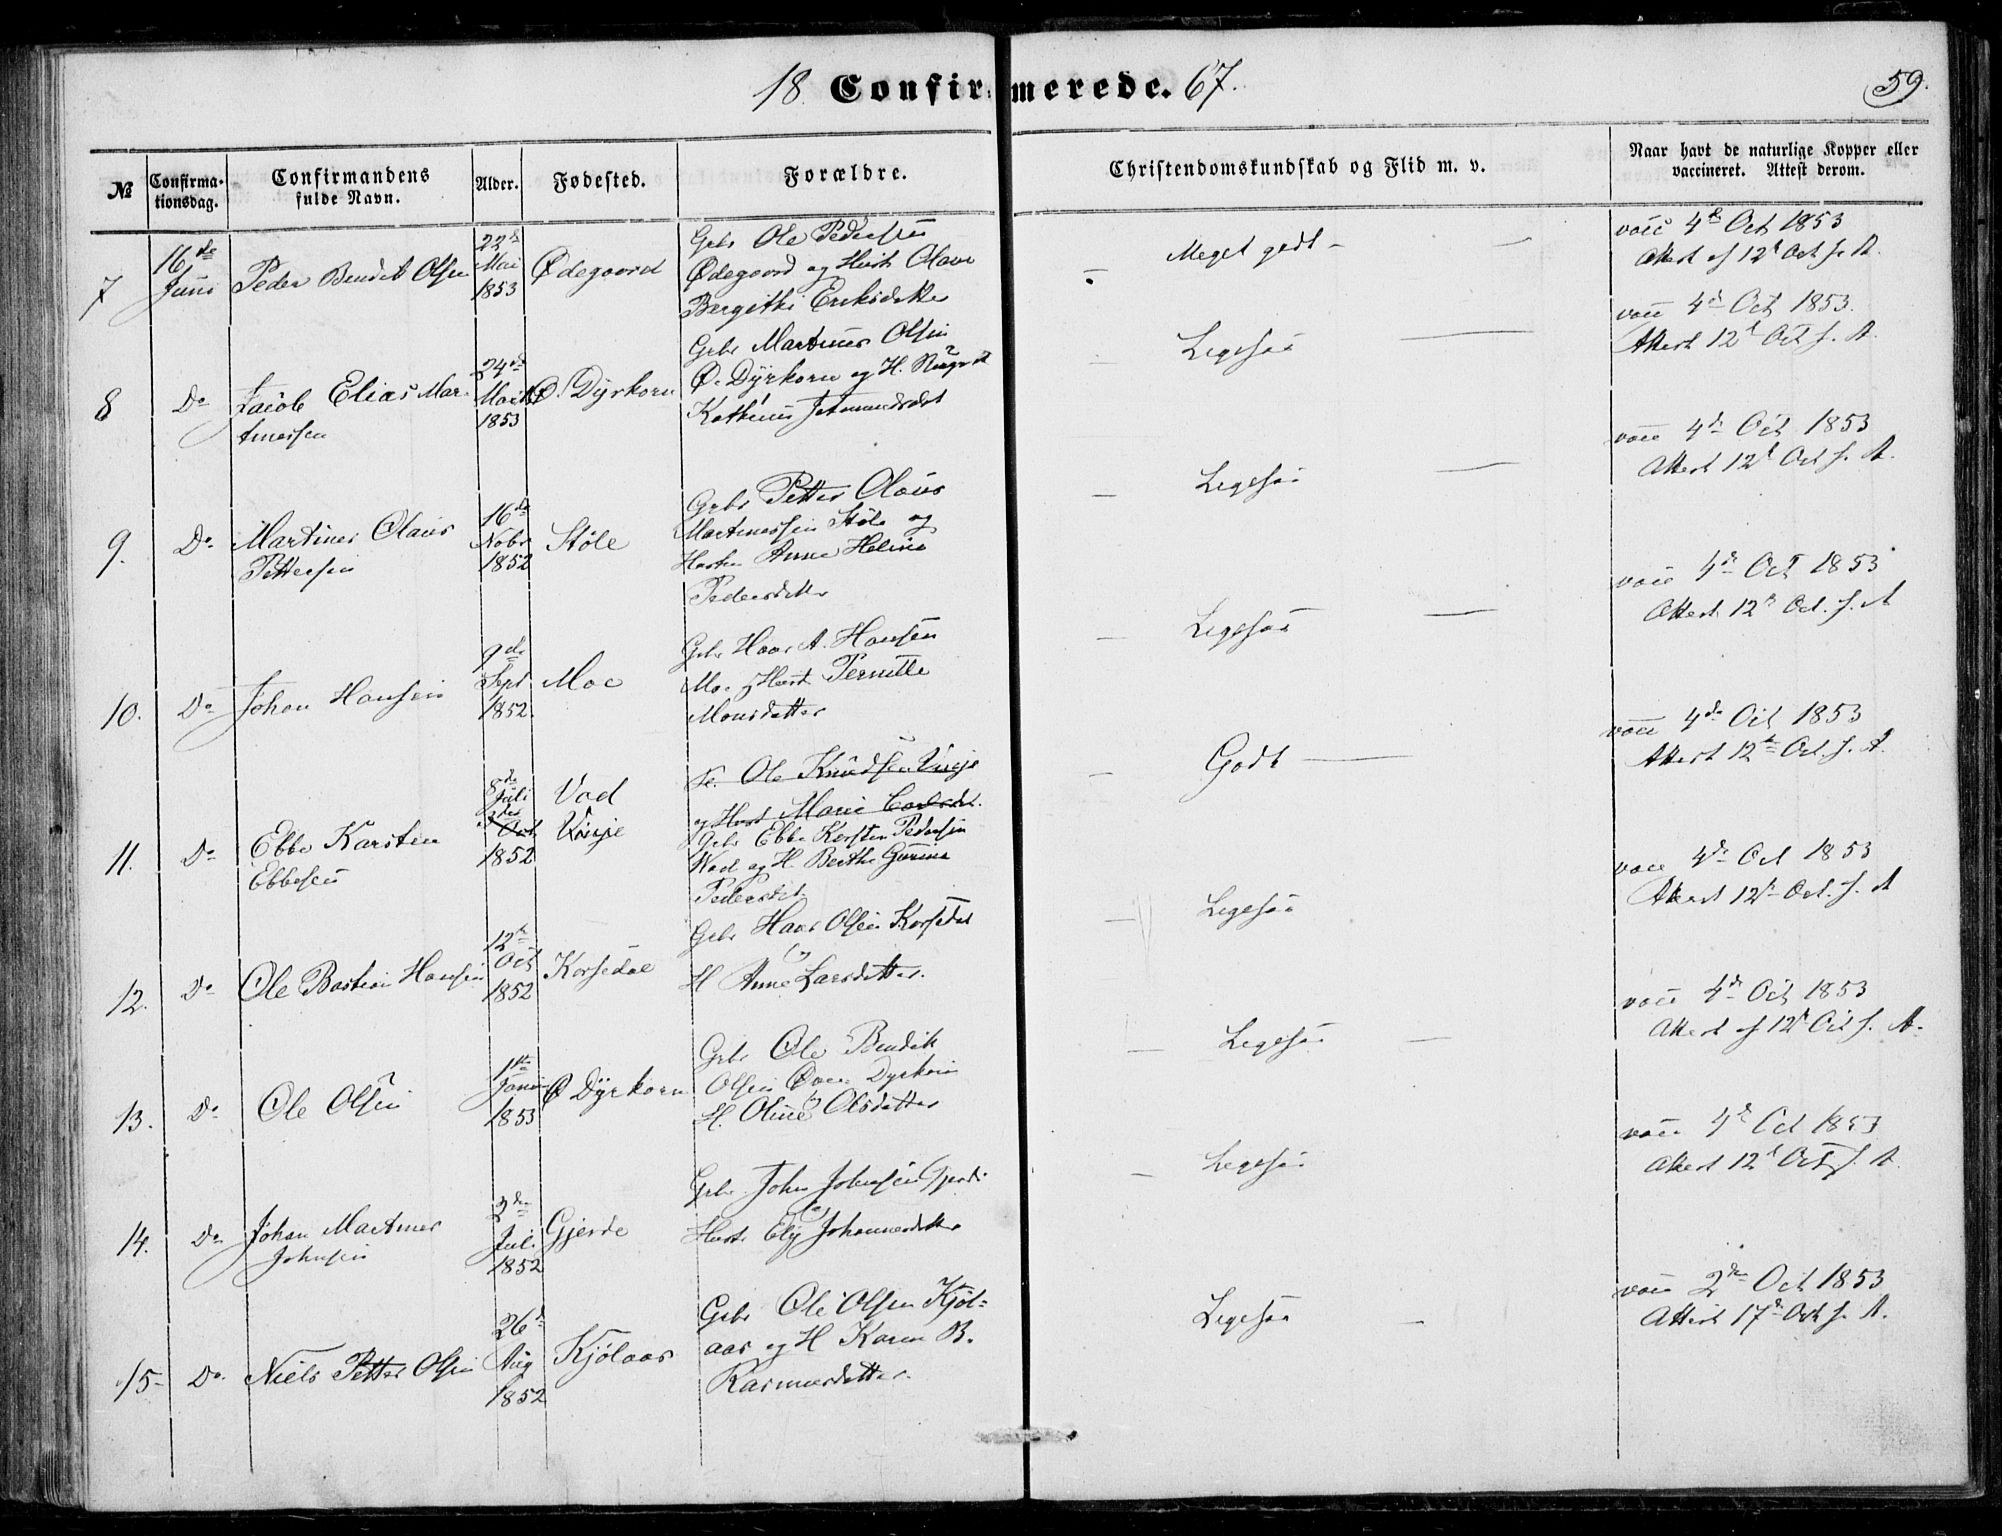 18 Confirmerede. 67.
59.
№
Confirma-
tionsdag.
Confirmandens
fulde Navn.
Alder.
Fødested.
Forældre.
Christendomskundskab og Flid m. v.
Naar havt de naturlige Kopper eller
vaccineret. Attest derom.
7
16de
Juni
Peder Bendik Olsen
22de
Mai
1853
Ødegaard
Grbr Ole Pedersen
Ødegaard og Hust Olave
Bergithe Eriksdatter
Meget godt
vacc 4de Oct 1853
Attest af 12t Oct s. A.
8
Do
Jacob Elias Mar-
tinussen
24de
1853
Ø. Dyrkorn
Grbr Martinus Olsen
Ø. Dyrkorn og H.
Ligesaa
vacc 4de Oct 1853.
Attest 12t Oct s. A.
9.
Do
Martines Olaus
Pettersen
16de
Nobr
1852
Støle
Grbr Petter Olaus
Martinussen Støle og
Hustru Anne Heline
Pedersdatter
Ligesaa
vacc 4de Oct 1853
Attest 12t Oct s. A.
10.
Do
Johan Hansen
9de
Sept
1852.
Moe
Grbr Hans A. Hansen
Moe og Hust Pernille
Monsdatter
Ligesaa
vacc 4de Oct 1853
Attest 12t Oct. s. A
11.
Do
Ebbe Karsten
Ebbesen
8de
Juli
Oct
1852
Vad
Viseje
Ole Knudsen Viseje
og Hust Marie Carlsdt.
Grbr Ebbe Karsten Pedersen
Wad og H. Berthe Gurine
Pedersdt.
Godt
vacc 4de Oct 1853
Attest 12t Oct. s. A.
12.
Do
Ole Bastian Hansen
12te
Oct
1852
Korsedal
Grbr Hans Olsen Korsedal
og
H Anne Larsdatter.
Ligesaa
vacc 4de Oct 1853
Attest 12t Oct. s. A
13.
Do
Ole Olsen
1ste
Januar
1853
Ø Dyrkorn
Grbr Ole Bendik
Olsen Øvre Dyrkorn
og
H. Oline Olsdatter
Ligesaa
vacc 4de Oct 1853
Attest af 12t Oct s. A.
14.
Do
Johan Martines
Johnsen
2den
Juli
1852
Gjerde
Grbr John Johnsen Gjerde
og
Hust Elij Johannesdatter
Ligesaa
vacc 4de Oct 1853
Attest 12t Oct s. A.
15
Do.
Niels Petter Olsen
26de
Aug
1852
Kjølaas
Grbr Ole Olsen Kjøl-
aas og H Karen B.
Rasmusdatter.
Ligesaa
vacc 2den Oct 1853
Attest 17de Oct s. A.